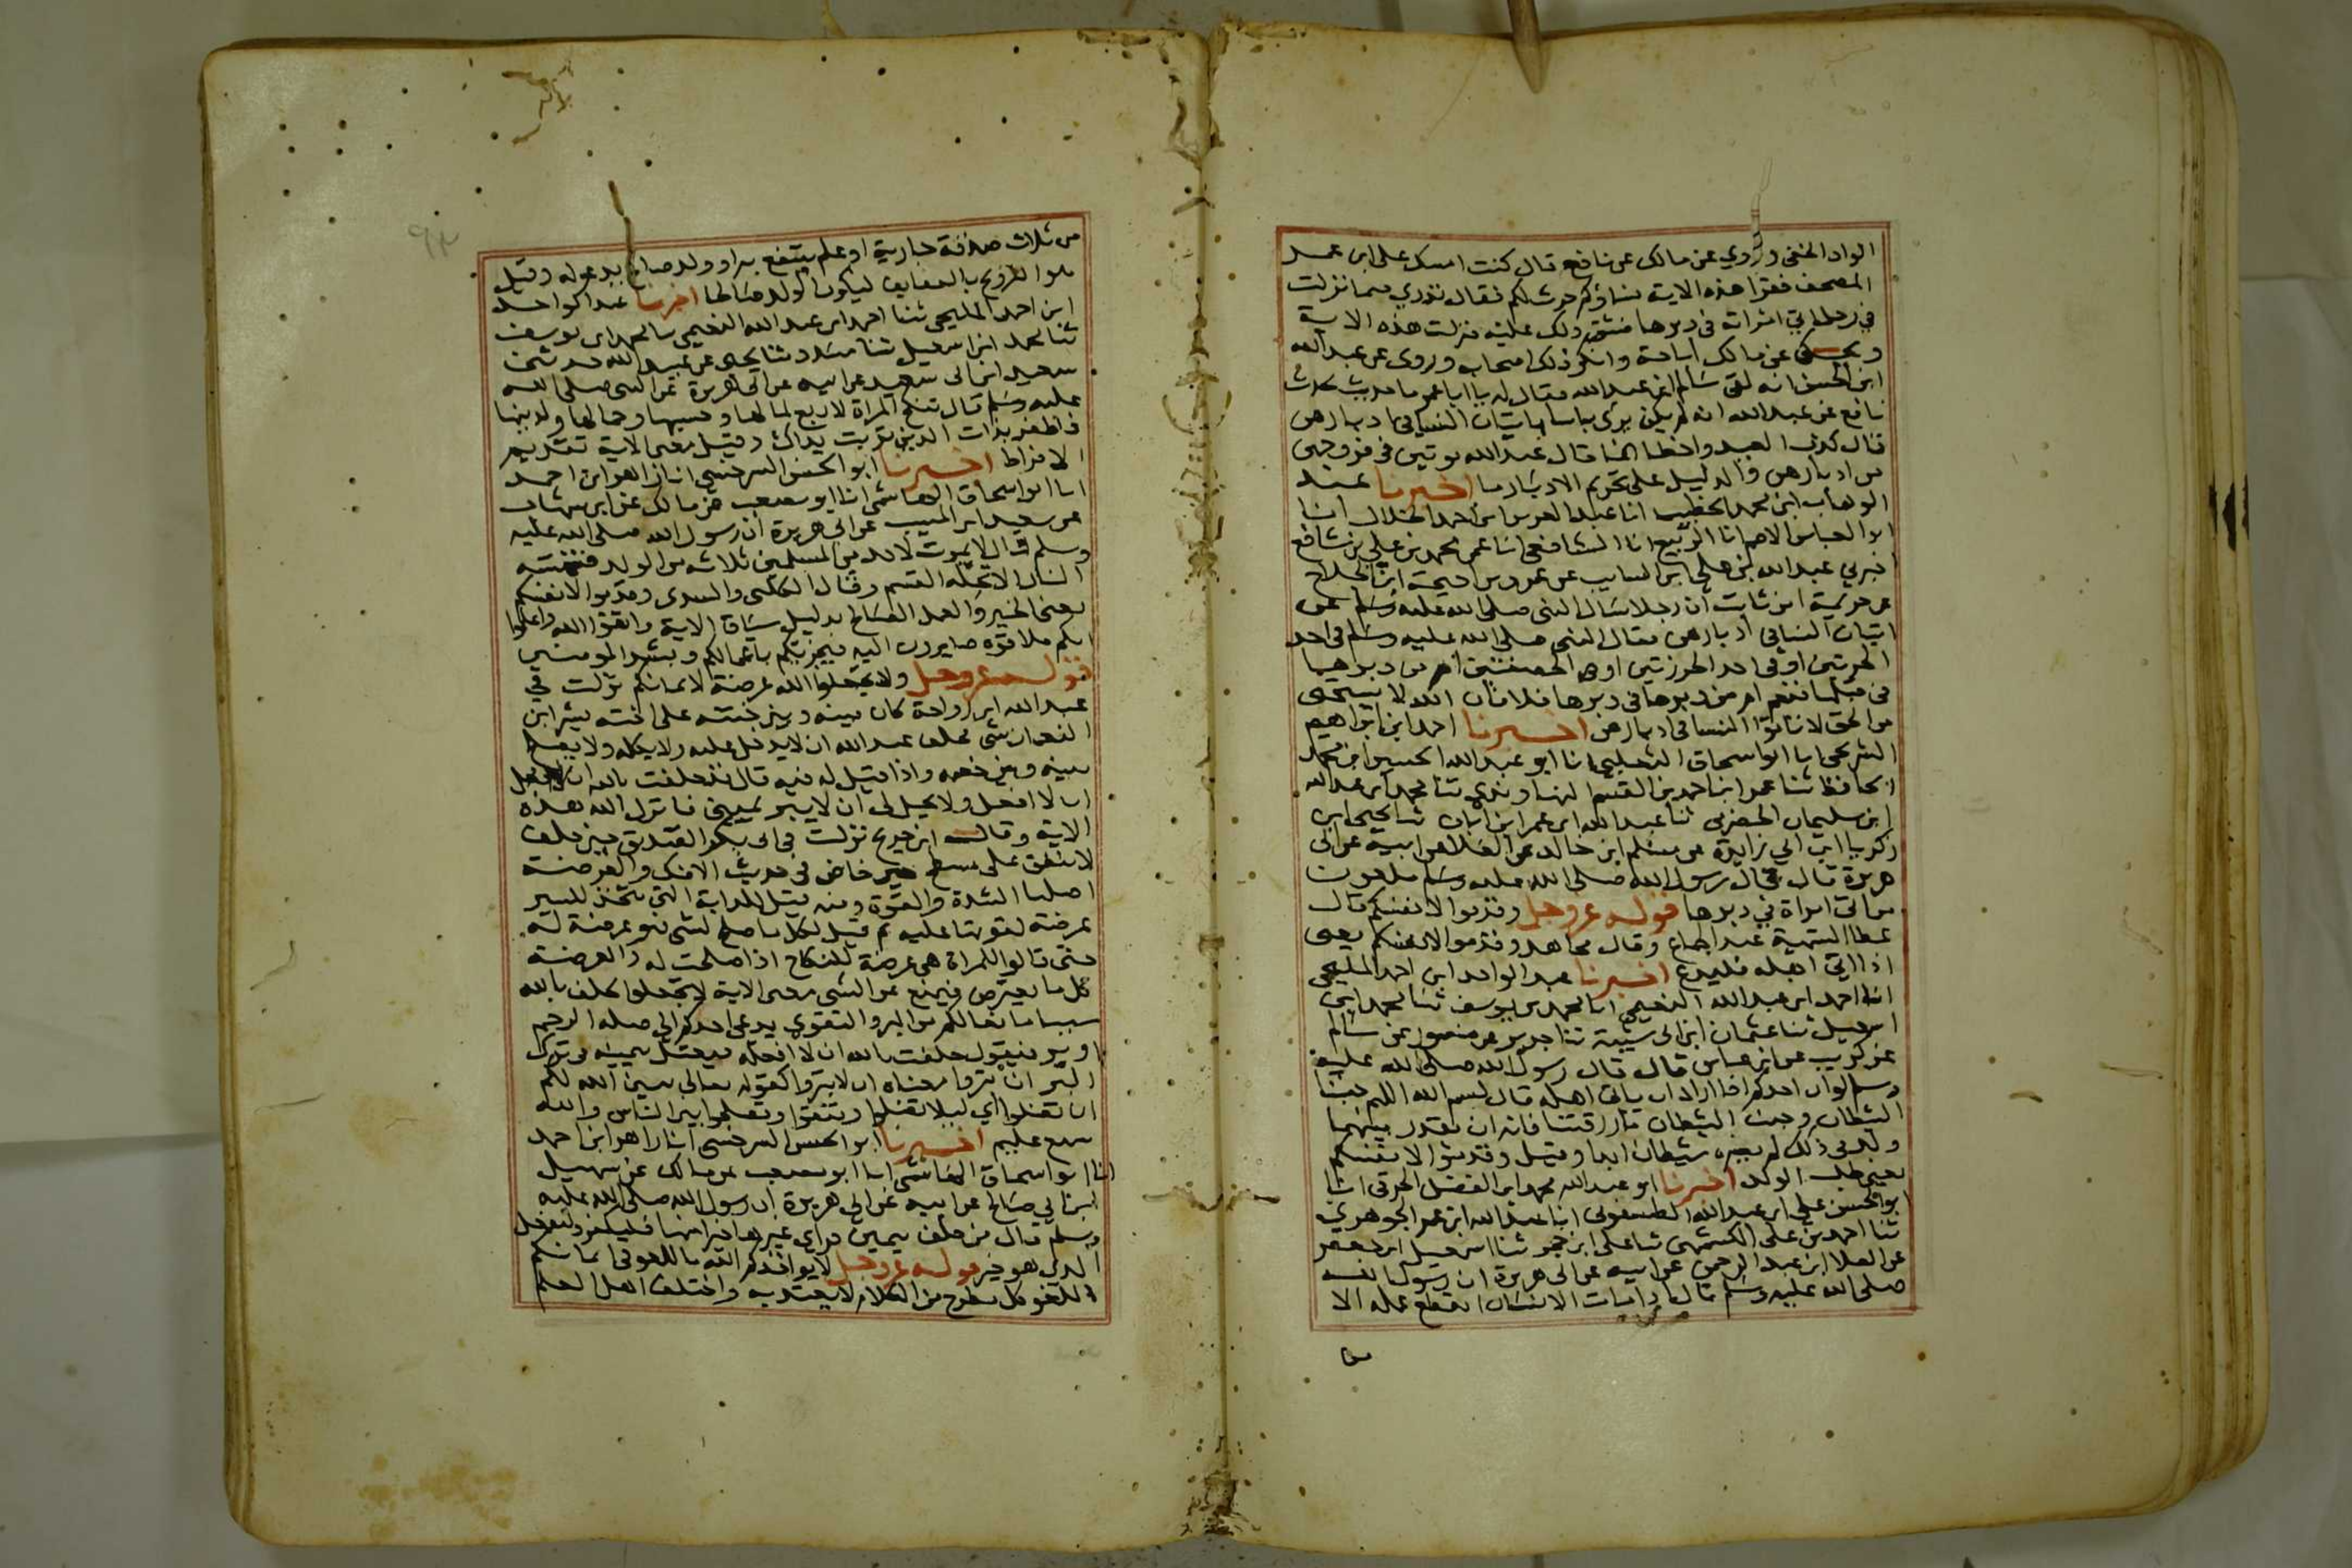 الواد الخفي وروي عن مالك عن نافع قال كنت امسك على ابن عمر
المصحف فقرا هذه الاية نساؤكم حرث لكم فقال تدري فيما نزلت
في رجل اتى امراته في دبرها فشق ذلك عليه فنزلت هذه الاية
ويحكى عن مالك اباحة وانكر ذلك اصحابه وروى عن عبدالله
ابن الحسن انه لقى سالم ابن عبدالله فقال له يا ابا عمر ما حديث يحدث
نافع عن عبدالله انه لم يكن يرى باسا باتيان النسا في ادبارهن
قال كذب العبد واخطا انما قال عبدالله يوتين في فروجهن
من ادبارهن والدليل على تحريم الادبار ما اخبرنا عبد
الوهاب ابن محمد الخطيب انا عبد العزيز ابن احمد الخلال انا
ابو العباس الاصم انا الربيع انا الشافعي انا عمي محمد بن علي بن شافع
اخبرني عبدالله بن علي ابن السايب عن عمرو بن احيحة ابن الجلاح
عن خزيمة ابن ثابت ان رجلا سال النبي صلى الله عليه وسلم عن
اتيان النسا في ادبارهن فقال النبي صلى الله عليه وسلم في احد
الخربتين او في احد الخرزتين او في الخصفتين ام من دبرها
في قبلها فنعم ام من دبرها في دبرها فلا فان الله لا يستحى
من الحق لا تاتوا النسا في ادبارهن اخبرنا احمد ابن ابراهيم
الشريحى انا ابو اسحاق الثعلبي انا ابو عبدالله الحسين ابن محمد
الحافظ ثنا عمر ابن احمد بن القسم النهاوندي ثنا محمد ابن عبدالله
ابن سليمان الحضرمي ثنا عبدالله ابن عمر ابن ابان ثنا يحيى ابن
زكريا ابن ابي زايدة عن مسلم ابن خالد عن العلا عن ابيه عن ابى
هريرة قال قال رسول الله صلى الله عليه وسلم ملعون
من اتى امراة في دبرها قوله عز وجل وقدموا لانفسكم قال
عطا التسمية عند الجماع وقال مجاهد وقدموا لانفسكم يعنى
اذا اتى اهله فليدع اخبرنا عبد الواحد ابن احمد المليحى
انا احمد ابن عبدالله النعيمي انا محمد بن يوسف ثنا محمد ابن
اسمعيل ثنا عثمان ابن ابى شيبة ثنا جرير عن منصور عن سالم
عن كريب عن ابن عباس قال قال رسول الله صلى الله عليه
وسلم لو ان احدكم اذا اراد ان ياتى اهله قال بسم الله اللهم جنبنا
الشيطان وجنب الشيطان ما رزقتنا فانه ان يقدر بينهما
ولد في ذلك لم يضره شيطان ابدا وقيل وقدموا لانفسكم
يعني طلب الولد اخبرنا ابو عبدالله محمد ابن الفضل الخرقي انا
ابو الحسن علي ابن عبدالله الطيسفوني انا عبدالله ابن عمر الجوهري
ثنا احمد بن على الكشمهينى ثنا على ابن حجر ثنا اسمعيل ابن جعفر
عن العلا ابن عبد الرحمن عن ابيه عن ابى هريرة ان رسول الله
صلى الله عليه وسلم قال اذا مات الانسان انقطع عمله الا
من
من ثلاث صدقة جارية او علم ينتفع به او ولد صالح يدعو له وقيل
هو التزويج بالعفايف ليكون الولد صالحا اخبرنا عبد الواحد
ابن احمد المليحي ثنا احمد ابن عبدالله النعيمي نا محمد ابن يوسف
ثنا محمد ابن اسمعيل ثنا مسدد ثنا يحيى عن عبيدالله حدثنى
سعيد ابن ابى سعيد عن ابيه عن ابى هريرة عن النبى صلى الله
عليه وسلم قال تنكح المراة لاربع لمالها وحسبها وجمالها ولدينها
فاظفر بذات الدين تربت يداك وقيل معنى الاية تقديم
الافراط اخبرنا ابو الحسن السرخسي انا زاهر ابن احمد
انا ابو اسحاق الهاشمي انا ابو مصعب عن مالك عن ابن شهاب
عن سعيد ابن المسيب عن ابى هريرة ان رسول الله صلى الله عليه
وسلم قال لا يموت لاحد من المسلمين ثلاثه من الولد فتمسه
النار الا تحلة القسم وقال الكلبى والسدى وقدموا لانفسكم
يعنى الخير والعمل الصالح بدليل سياق الاية واتقوا الله واعلموا
انكم ملاقوه صايرون اليه فيجزيكم باعمالكم وبشر المومنين
قوله عز وجل ولا تجعلوا الله عرضة لايمانكم نزلت في
عبدالله ابن رواحة كان بينه وبين ختنه على اخته بشر ابن
النعمان شى فحلف عبدالله ان لا يدخل عليه ولا يكلمه ولا يصلح
بينه وبين خصمه واذا قيل له فيه قال قد حلفت بالله ان
ان لا افعل ولا يحل لى ان لا يبر يمينى فانزل الله هذه
الاية وقال ابن جريج نزلت في ابى بكر الصديق حين حلف
لا ينفق على مسطح حين خاض في حديث الافك والعرضة
اصلها الشدة والقوة ومنه قيل للدابة التي تتخذ للسير
عرضة لقوتها عليه ثم قيل لكل ما صلح لشى هو عرضة له
حتى قالوا للمراة هى عرضة للنكاح اذا صلحت له والعرضة
كل ما يعترض فيمنع عن الشى معنى الاية لا تجعلوا حلف بالله
سببا مانعا لكم من البر والتقوى يدعى احدكم الى صلة الرحم
او بر فيقول حلفت بالله ان لا افعله فيعتل بيمينه في ترك
البر ان تبروا معناه ان لا تبروا كقوله تعالى يبين الله لكم
ان تضلوا اي ليلا تضلوا وتتقوا وتصلحوا بين الناس والله
سميع عليم اخبرنا ابو الحسن السرخسى انا زاهر ابن احمد
انا ابو اسحاق الهاشمى انا ابو مصعب عن مالك عن سهيل
ابن ابي صالح عن ابيه عن ابى هريرة ان رسول الله صلى الله عليه
وسلم قال من حلف بيمين فراى غيرها خيرا منها فليكفر وليفعل
الذى هو خير قوله عز وجل لا يواخذكم الله باللغو في ايمانكم
اللغو كل مطرح من الكلام لا يعتد به واختلف اهل العلم